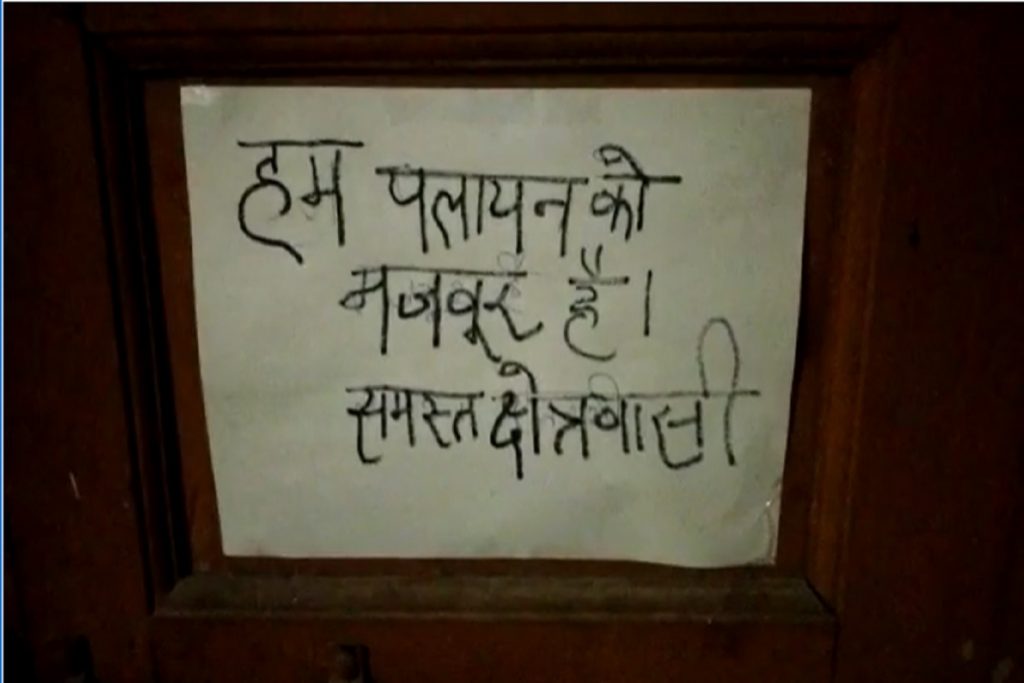 हम पलायन को
मजबूर है।
समस्त क्षेत्रवासी